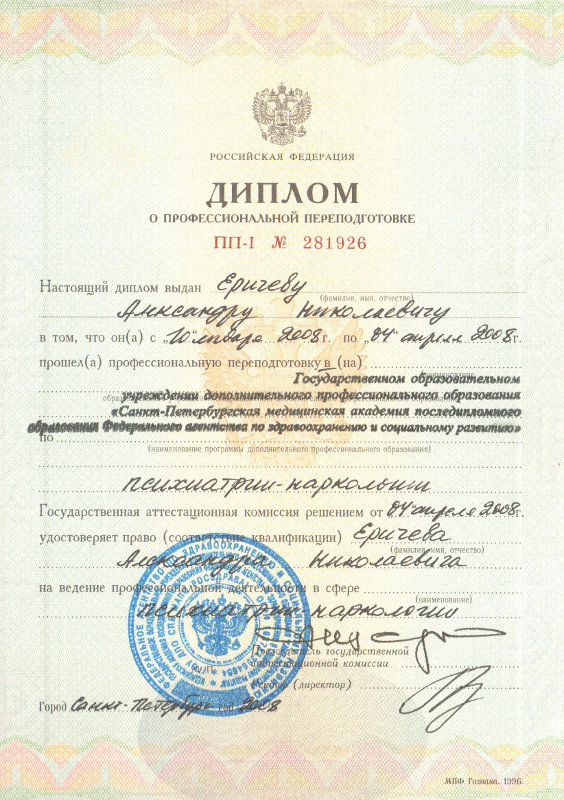 РОССИЙСКАЯ ФЕДЕРАЦИЯ
ДИПЛОМ
О ПРОФЕССИОНАЛЬНОЙ ПЕРЕПОДГОТОВКЕ
ПП-I № 281926
Настоящий диплом выдан Еричеву
(фамилия, имя, отчество)
Александру Николаевичу
в том, что он(а) с „10“ января 2008г. по „04“ апреля 2008г.
прошел(а) профессиональную переподготовку в (на)
(наименование
Государственном образовательном
учреждении дополнительного профессионального образования
«Санкт-Петербургская медицинская академия последипломного
образования Федерального агентства по здравоохранению и социальному развитию»
по
(наименование программы дополнительного профессионального образования)
психиатрии-наркологии
Государственная аттестационная комиссия решением от 04 апреля 2008г.
удостоверяет право (соответствие квалификации) Еричева
(фамилия, имя, отчество)
Александра Николаевича
на ведение профессиональной деятельности в сфере
(наименование)
психиатрии-наркологии
Председатель государственной
аттестационной комиссии
Ректор (директор)
Город Санкт-Петербург год 2008
МПФ Гознака. 1996.